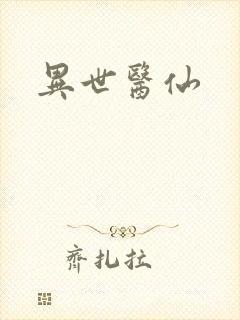 異世醫仙
齊扎拉